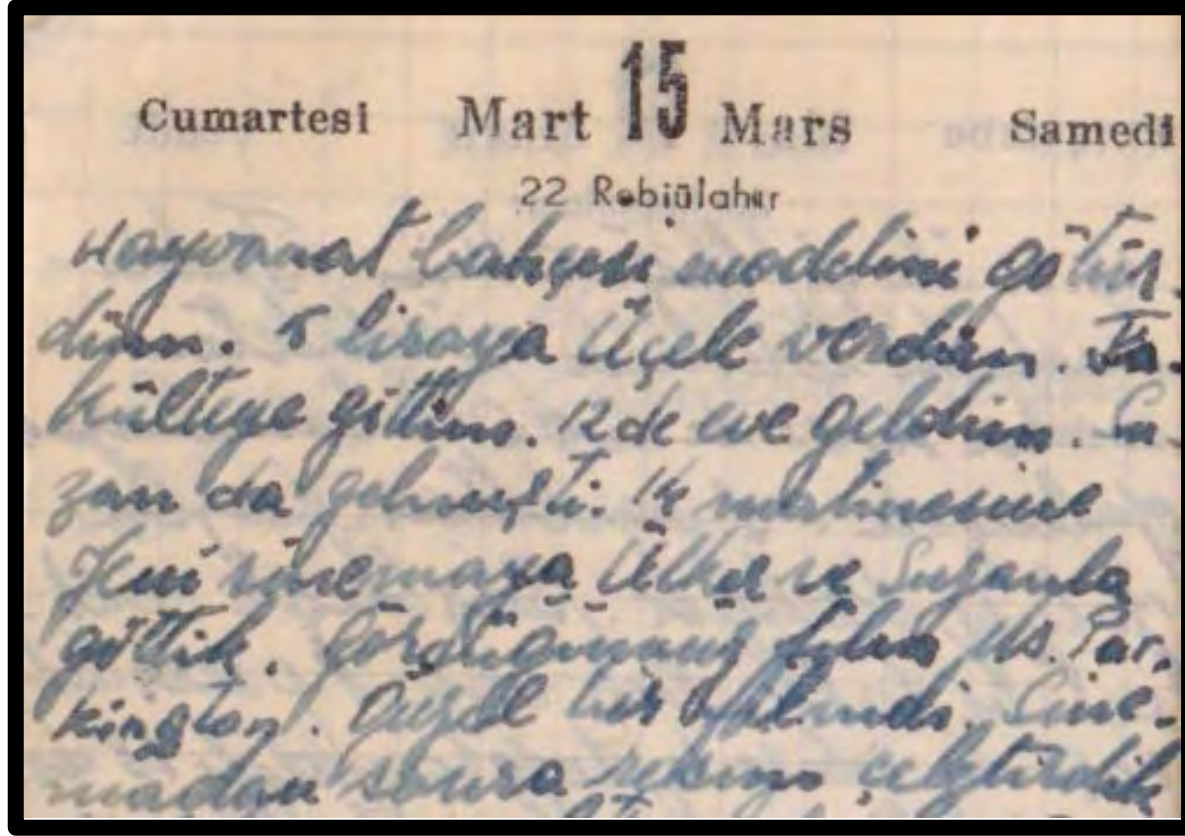 Cumartesi Mart 15 Mars Samedi
22 Rebiülahır
Hayvanat bahçesi modelini götür-
düm. 5 liraya Üçele verdim. Fa-
külteye gittim. 12 de eve geldim. Su-
zan da gelmişti. 14 matinesine
Yeni sinemaya Ülker ve Suzanla
gittik. Gördüğümüz film Ms. Par-
kington. Güzel bir filmdi. Sine-
madan sonra resim çektirdik